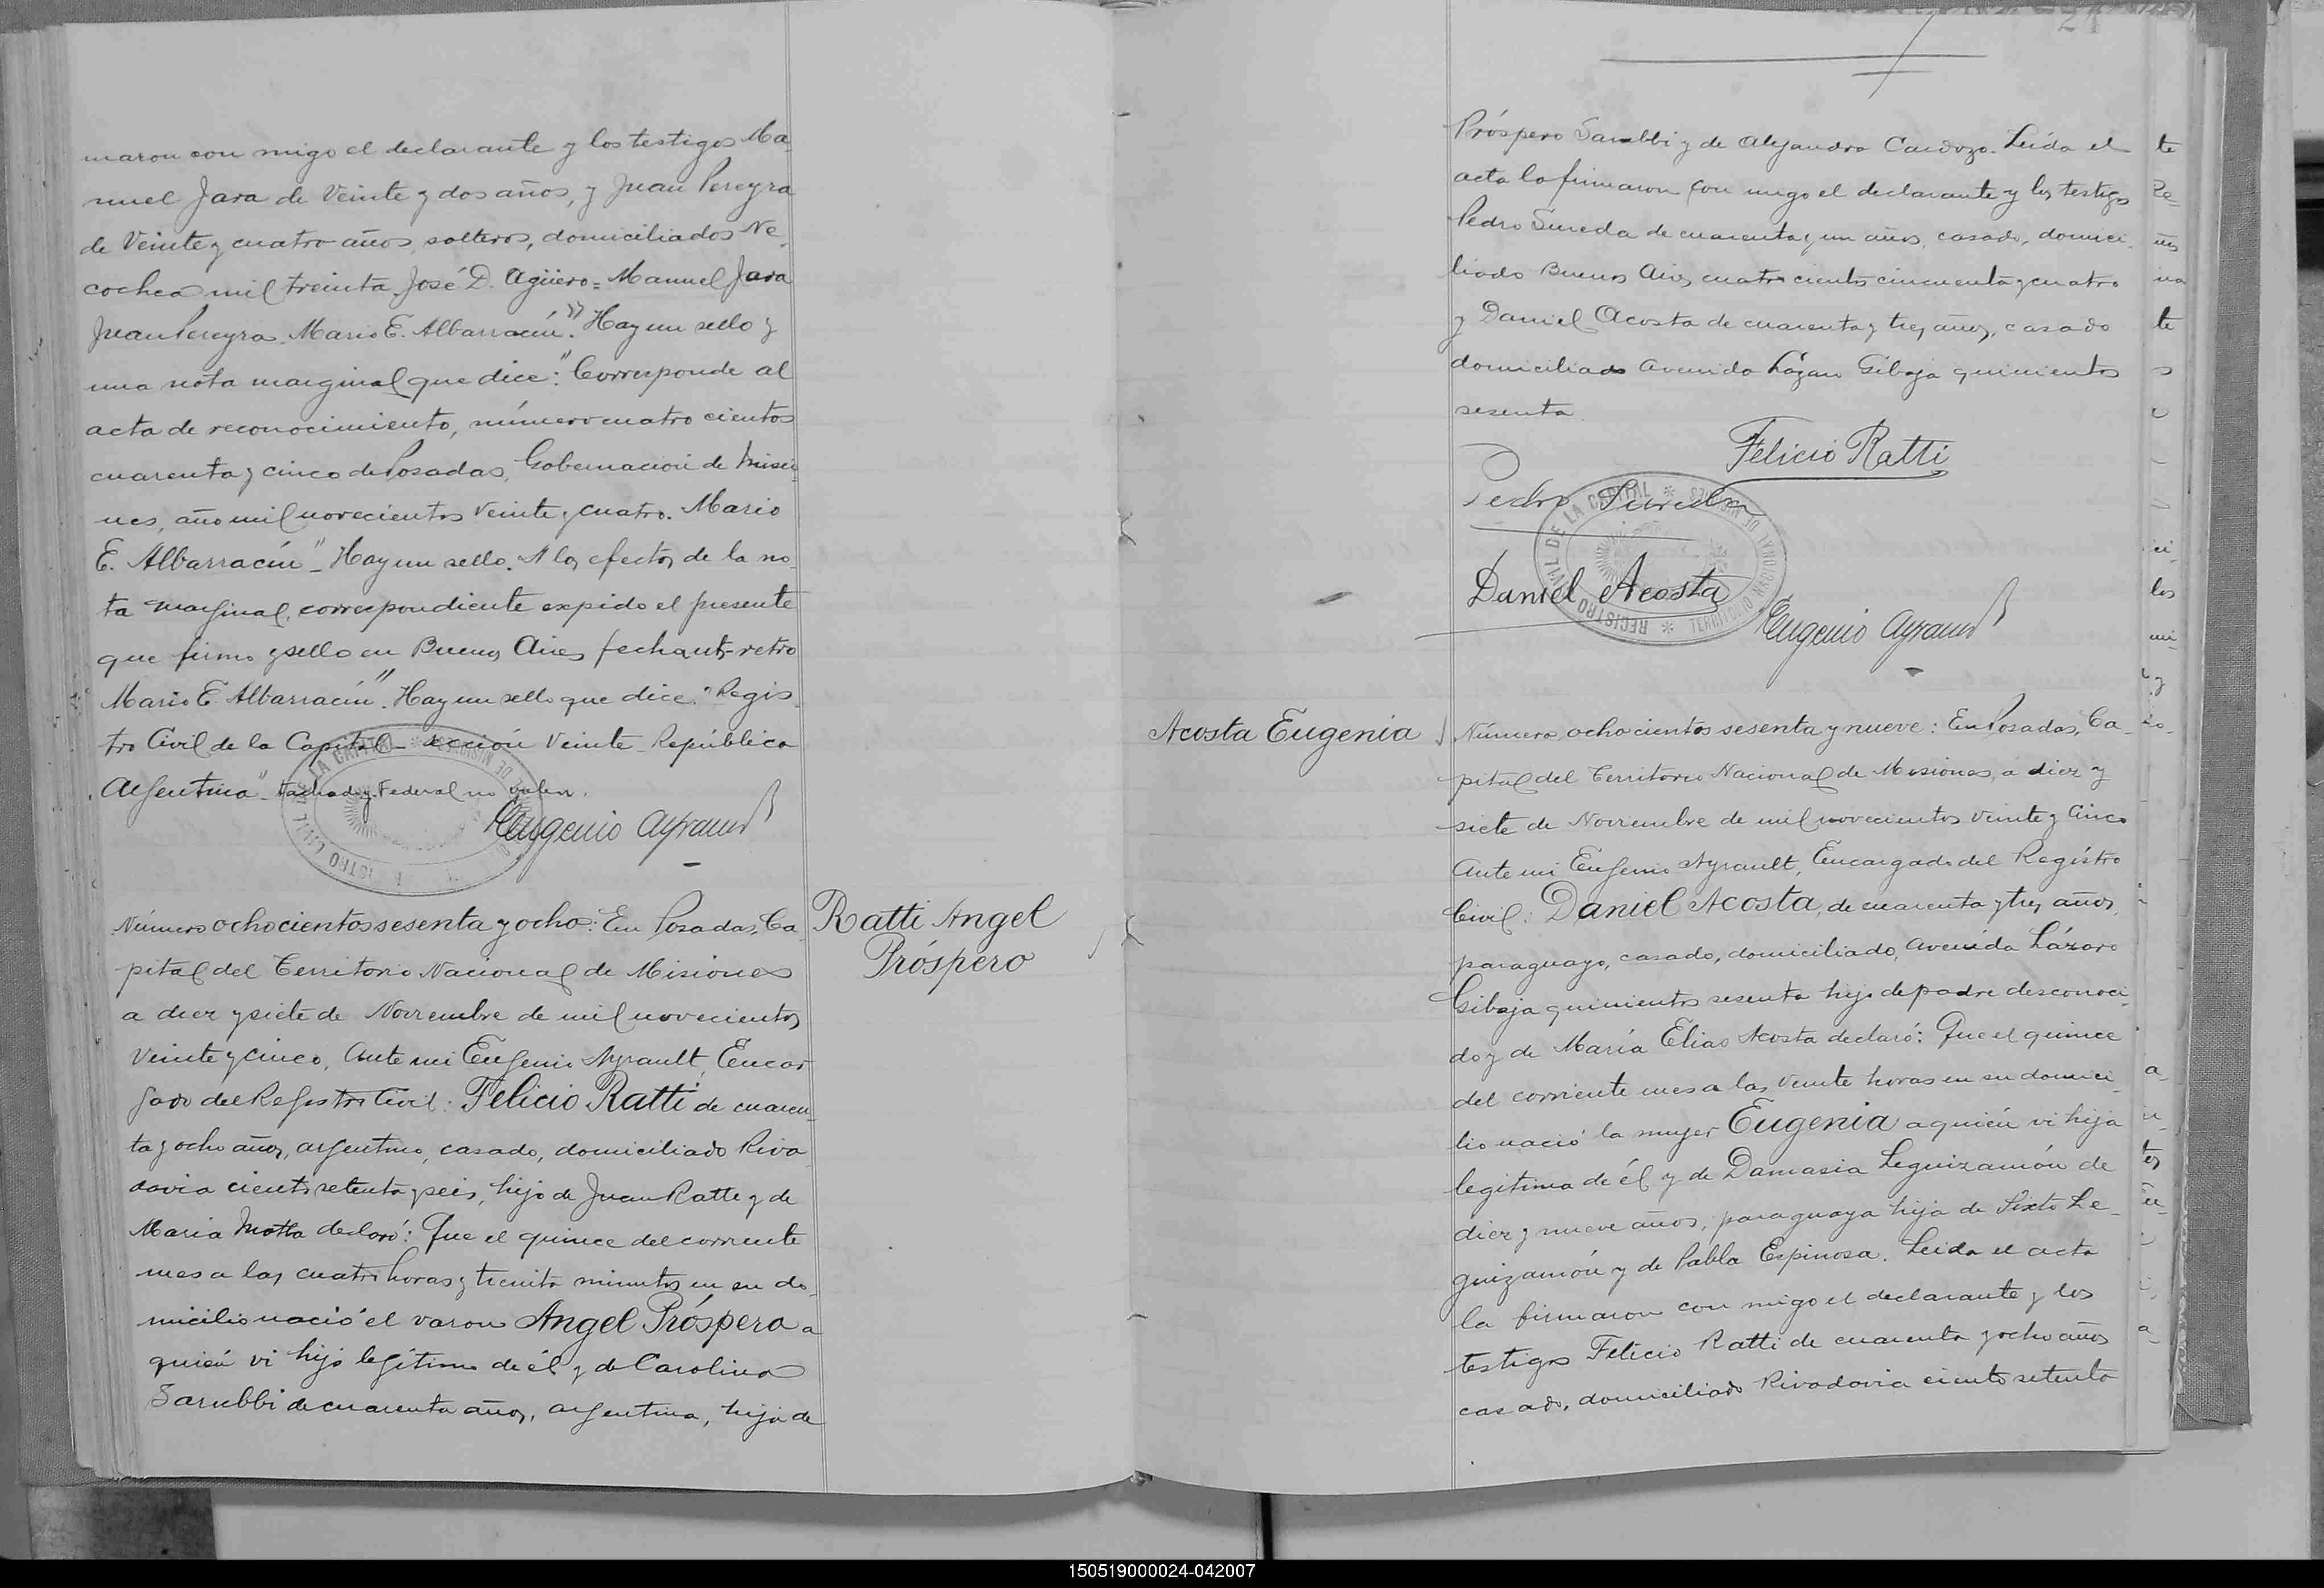 maron con migo el declarante y los testigos Ma-
nuel Jara de Veinte y dos años, y Juan Pereyra
de Veinte y cuatro años, solteros, domiciliados Ne-
cochea mil treinta José D. Agüero = Manuel Jara
Juan Pereyra. Mario E. Albarracín." Hay un sello y
una nota marginal que dice: "Corresponde al
acta de reconocimiento, número cuatro cientos
cuarenta y cinco de Posadas, Gobernación de Misio-
nes, año mil novecientos Veinte y cuatro. Mario
E. Albarracín" - Hay un sello. A los efectos de la no-
ta marginal, correspondiente expido el presente
que firmo y sello en Buenos Aires fecha ut-retro
Mario E. Albarracín". Hay un sello que dice: "Regis-
tro Civil de la Capital - sección Veinte - República
Argentina" - Federal no valen.
Eugenio Ayrault
Número ochocientos sesenta y ocho: En Posadas, Ca-
pital del Territorio Nacional de Misiones
a diez y siete de Noviembre de mil novecientos
Veinte y cinco, Ante mi Eugenio Ayrault, Encar-
gado del Registro Civil: Felicio Ratti de cuaren-
ta y ocho años, argentino, casado, domiciliado Riva-
davia ciento setenta y seis, hijo de Juan Ratti y de
Maria Motta declaró: Que el quince del corriente
mes a las cuatro horas y treinta minutos en su do-
micilio nació el varon Angel Próspero a
quién vi hijo legítimo de él y de Carolina
Sarubbi de cuarenta años, argentina, hija de
Ratti Angel
Próspero
Próspero Sarubbi y de Alejandra Cardozo. Leída el
acta la firmaron con migo el declarante y los testigos
Pedro Sureda de cuarenta y un años, casado, domici-
liado Buenos Aires cuatro cientos cincuenta y cuatro
y Daniel Acosta de cuarenta y tres años, casado
domiciliado Avenida Lázaro Gibaja quinientos
sesenta.
Felicio Ratti
Pedro Sureda
REGISTRO CIVIL DE LA CAPITAL * TERRITORIO NACIONAL DE MISIONES *
Daniel Acosta
Eugenio Ayrault
Acosta Eugenia
Número ochocientos sesenta y nueve: En Posadas, Ca-
pital del Territorio Nacional de Misiones, a diez y
siete de Noviembre de mil novecientos Veinte y Cinco
Ante mi Eugenio Ayrault, Encargado del Registro
Civil: Daniel Acosta, de cuarenta y tres años,
paraguayo, casado, domiciliado, Avenida Lázaro
Gibaja quinientos sesenta hijo de padre desconoci-
do y de María Elias Acosta declaró: Que el quince
del corriente mes a las Veinte horas en su domici-
lio nació la mujer Eugenia a quién vi hija
legítima de él y de Damasia Leguizamón de
diez y nueve años, paraguaya hija de Sixto Le-
guizamón y de Pabla Espinosa. Leida el acta
la firmaron con migo el declarante y los
testigos Felicio Ratti de cuarenta y ocho años
casado, domiciliado Rivadavia ciento setenta
150519000024-042007